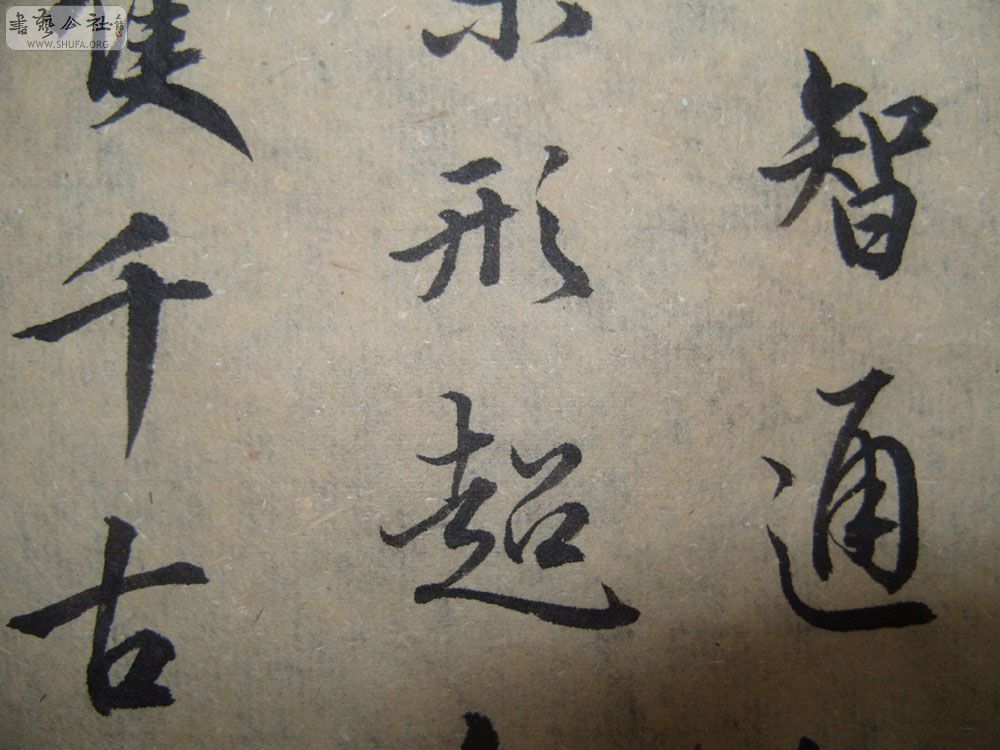 智通
形超
隻千古
書藝公社
WWW.SHUFA.ORG